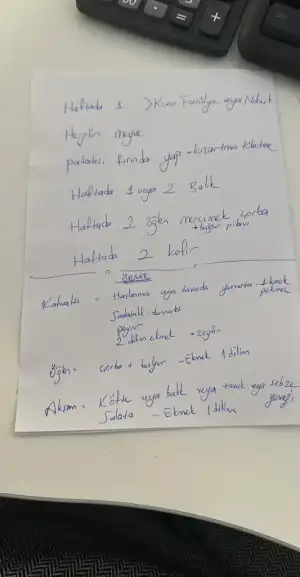 Haftada 1 > Kuru Fasülye veya Nohut
Hergün meyve
patates fırında yap - kızartma tüketme
Haftada 1 veya 2 Balık
Haftada 2 öğün mercimek çorba
+ bulgur pilavı
Haftada 2 kefir
Kahvaltı = Haşlanmış veya tavada yumurta - 1 kaşık pekmez
Salatalık - domates
peynir
2 dilim ekmek - zeytin
Öğlen = çorba + bulgur - Ekmek 1 dilim
Akşam = Köfte veya balık veya tavuk veya sebze yemeği
Salata - Ekmek 1 dilim